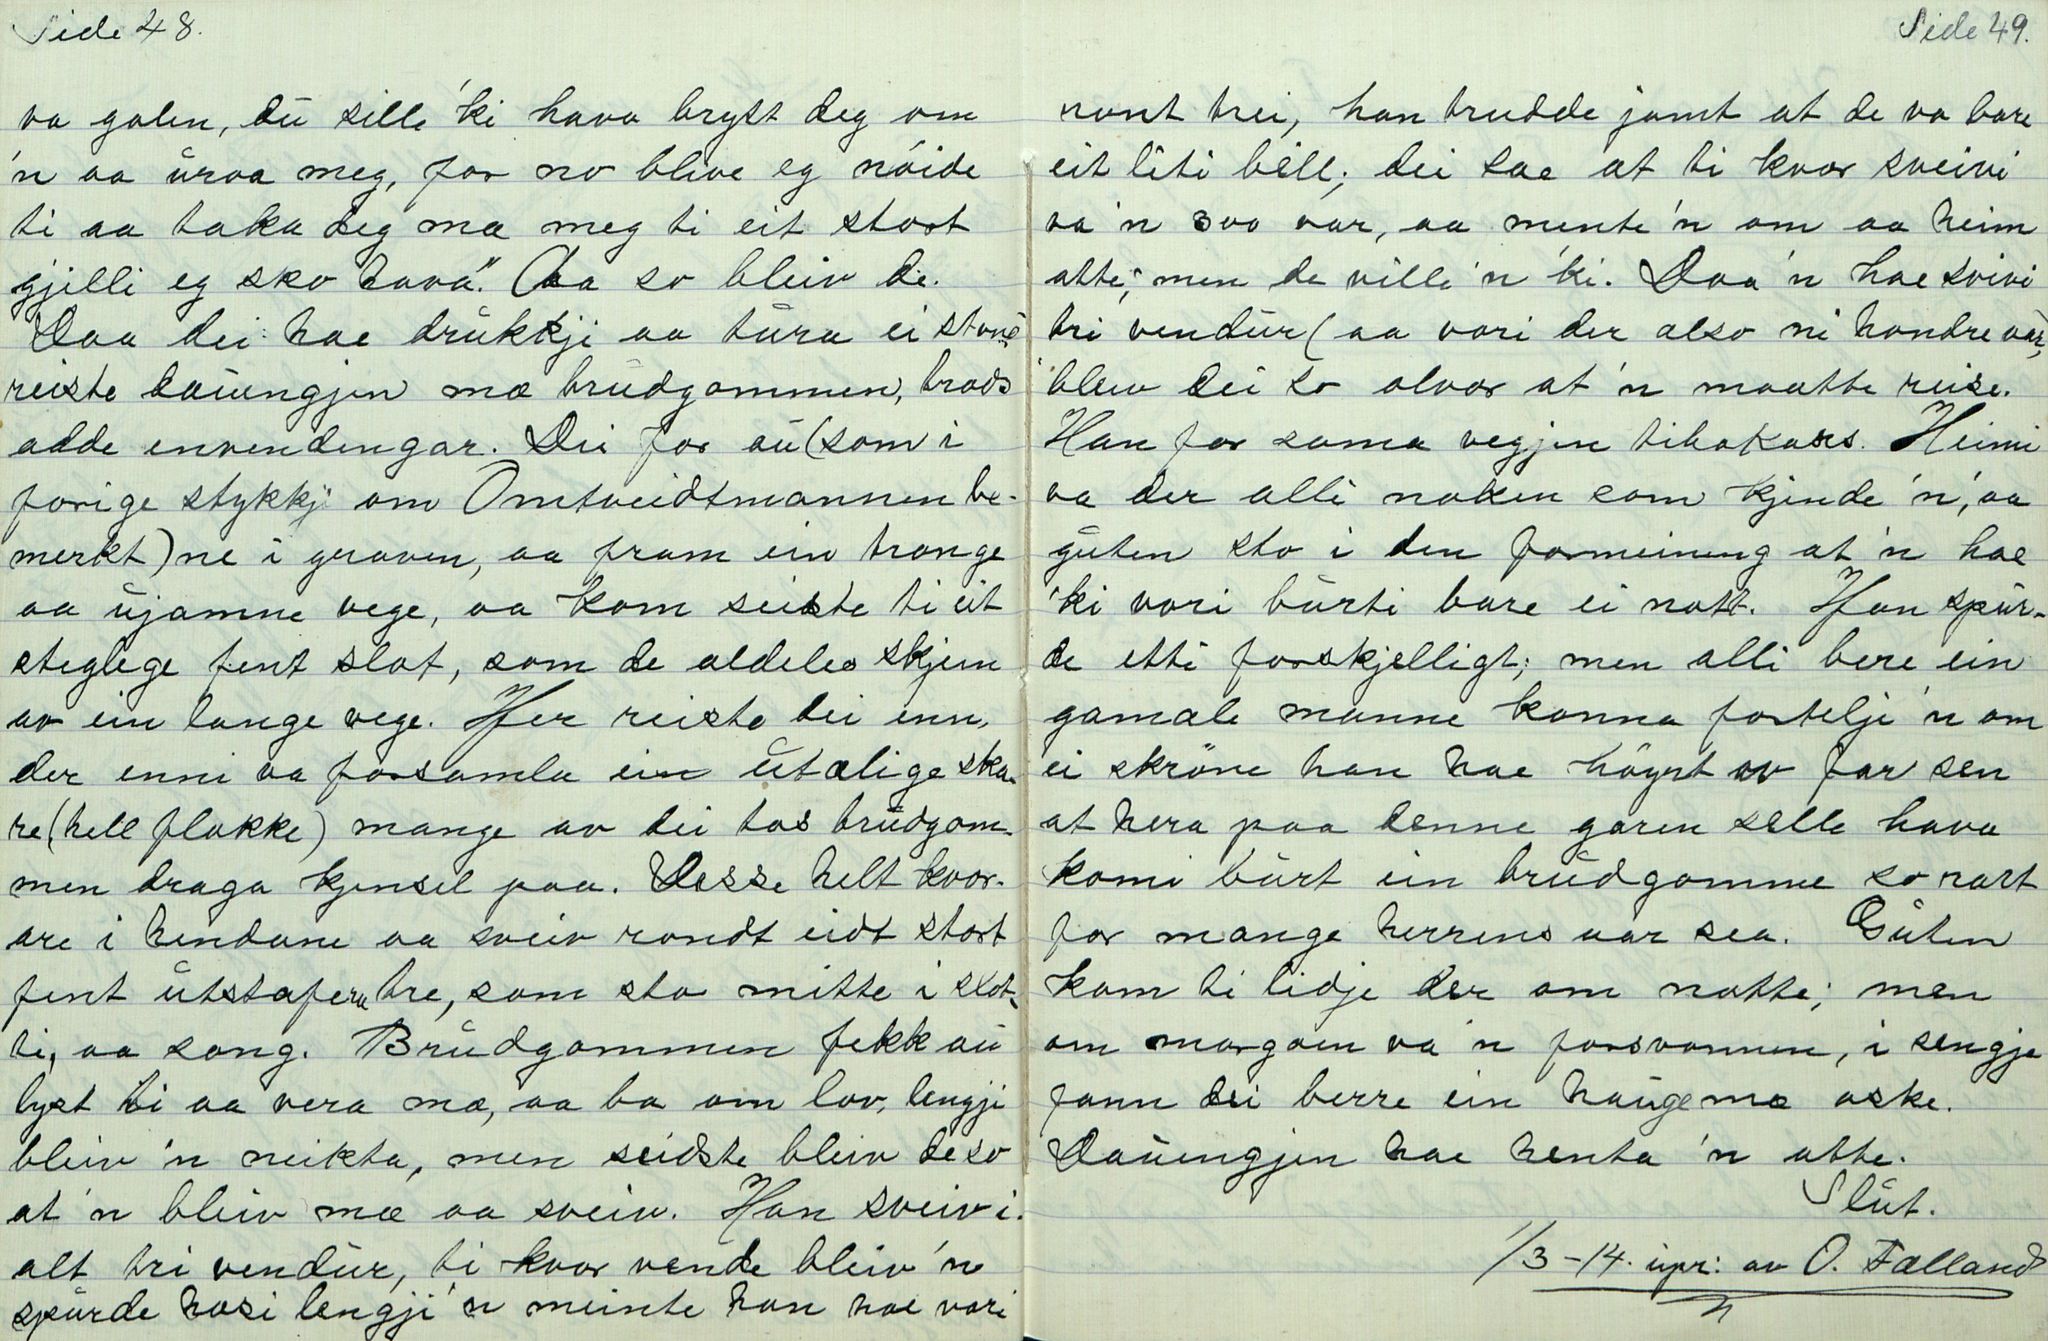 Side 48.
va galen, dü sille 'ki hava brytt deg om
'n aa üroa meg, for no blive eg nöide
ti aa taka deg mæ meg ti eit stort
gjilli eg sko hava". Aa so bleiv de.
Daa dei hae drükkji aa türa ei stund
reiste daüengjen mæ brüdgommen, trods
adde envendengar. Dei for aü (som i
forige stykkji om Omtveidtmannen be-
merkt) ne i graven, aa fram ein trange
aa üjamne vege, aa kom seiste ti eit
steglege fent slot, som de aldeles skjein
av ein lange vege. Her reiste dei enn,
der enni va forsamla ein ütælige ska-
re (hell flokke) mange av dei tos brüdgom-
men draga kjensel paa. Desse helt kvor-
are i hendane aa sveiv rondt eidt stort
fent ütstafera tre, som sto mitte i slot-
ti, aa song. Brüdgommen fekk aü
lyst ti aa vera mæ, aa ba om lov, lengji
bleiv 'n neikta, men seidste bleiv de so
at 'n bleiv mæ aa sveiv. Han sveiv i
alt tri vendür, ti kvor vende bleiv 'n
spürde hosi lengji 'n meinte han hae vori
Side 49.
ront trei, han trudde jamt at de va bare
eit liti bell; dei sae at ti kvor sveivi
va 'n 300 aar, aa mente 'n om aa heim
atte; men de ville 'n 'ki. Daa 'n hae svivi
tri vendür (aa vori der also ni hondre aar,
bleiv dei so alvor at 'n maatte reise.
Han for sama vegjen tibakars. Heimi
va der alli noken som kjende 'n, aa
güten sto i den formeining at 'n hae
'ki vori bürti bare ei natt. Han spür-
de etti forskjelligt; men alli bere ein
gamale manne konna fortelje 'n om
ei skröne han hae höyrt av far sen
at hera paa denne garen selle hava
komi bürt ein brüdgomme so rart
for mange herrens aar sea. Güten
kom ti lidje der om natte; men
om morgoen va 'n forsvonnen, i sengje
fann dei berre ein haüge mæ aske.
Daüengjen hae henta 'n atte.
Slüt.
1/3 – 14. upr: av O. Fælland